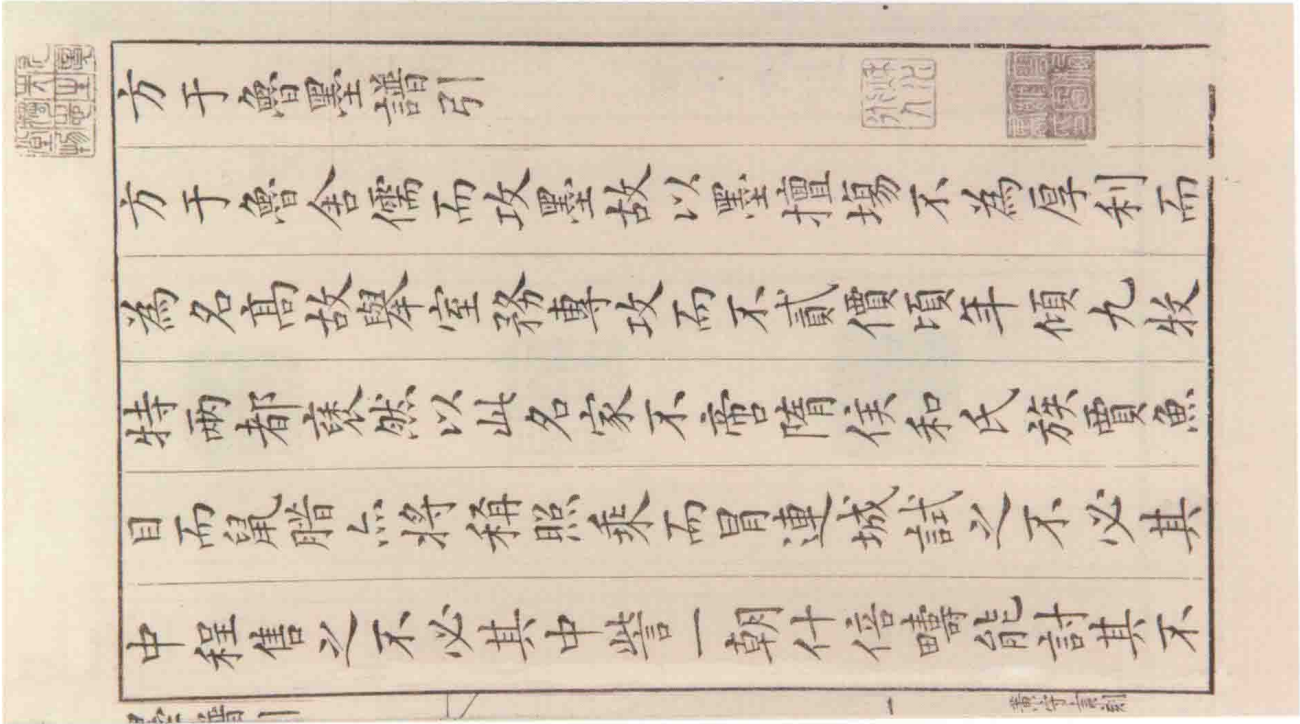 方于魯墨譜引
方于魯舍儒而攻墨故以墨擅場不為厚利而
為名高故舉室務專攻而不貳價頃年傾九牧
特兩都裒然以此名家不啻隋侯和氏族賈魚
目而鼠腊亦將稱照乘而冒連城試之不必其
中程售之不必其中訾一朝什倍疇能計其不
墨譜引
一
黃守言刻